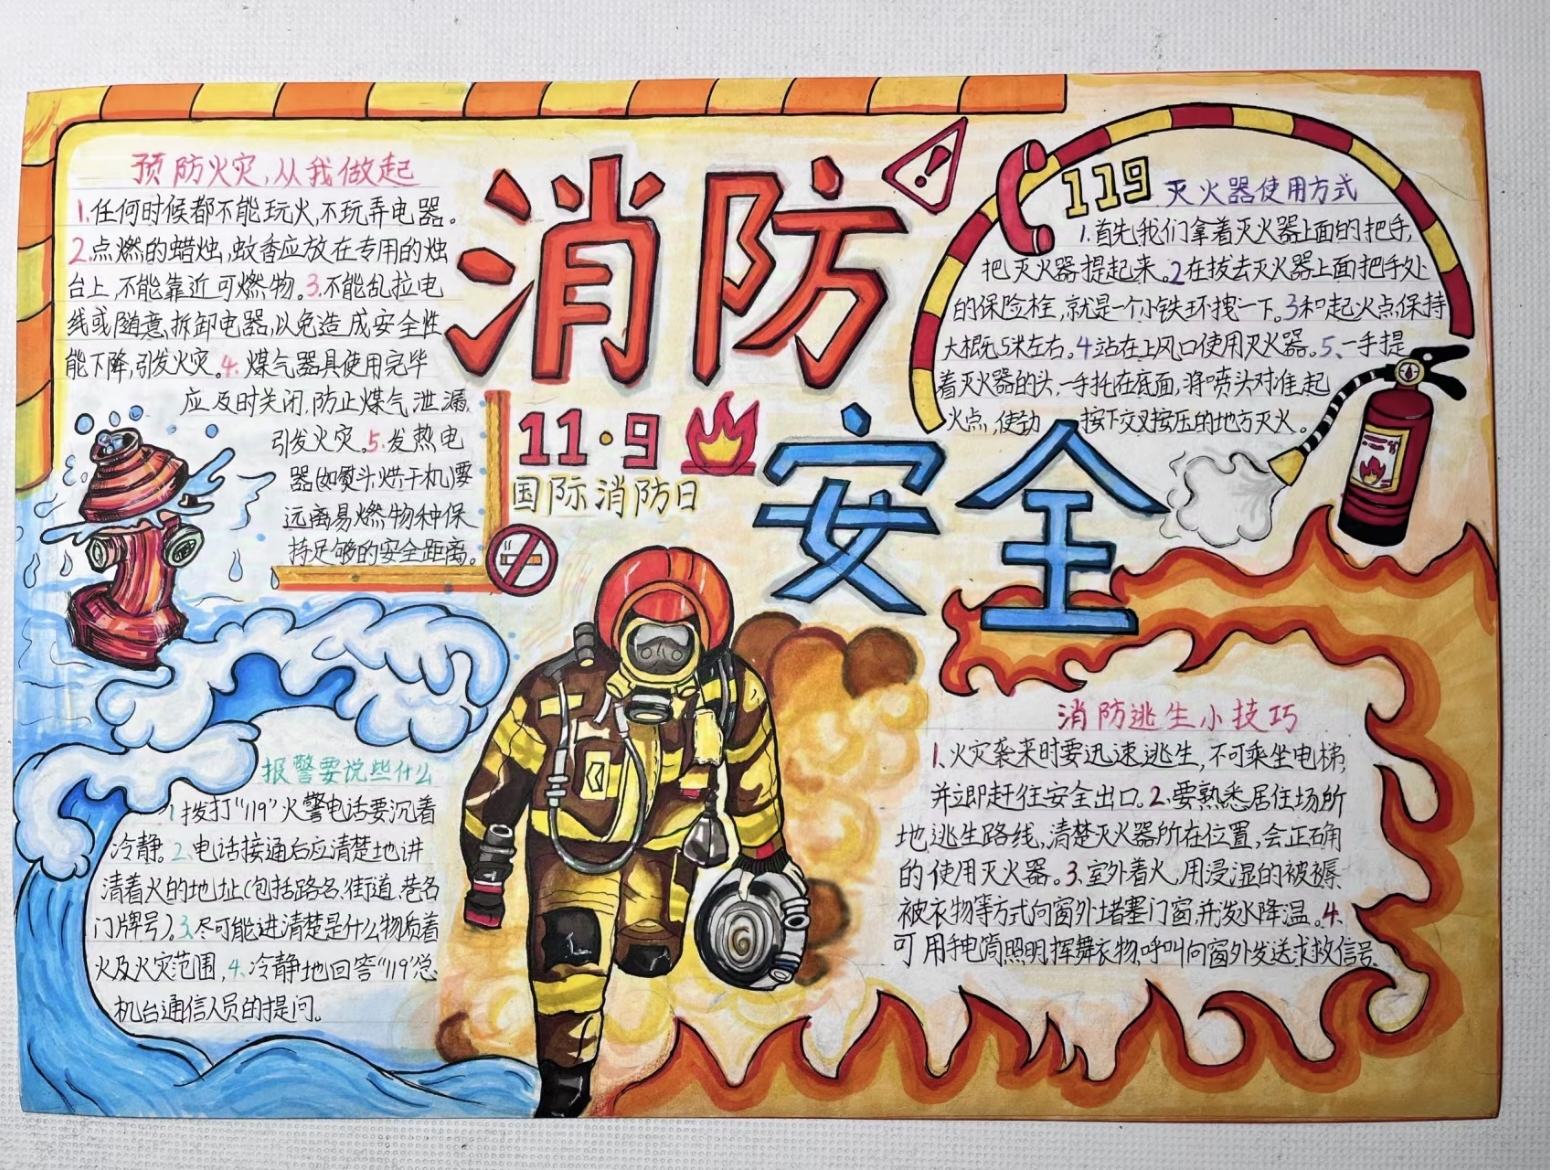 消防
安全
11·9
国际消防日
预防火灾,从我做起
1.任何时候都不能玩火,不玩弄电器。
2.点燃的蜡烛,蚊香应放在专用的烛
台上,不能靠近可燃物。3.不能乱拉电
线或随意拆卸电器,以免造成安全性
能下降,引发火灾。4.煤气器具使用完毕
应及时关闭,防止煤气泄漏,
引发火灾。5.发热电
器(如熨斗烘干机)要
远离易燃物种保
持足够的安全距离。
119
灭火器使用方式
1.首先,我们拿着灭火器上面的把手,
把灭火器提起来。2在拔去灭火器上面把手处
的保险栓,就是一个小铁环拽一下。3和起火点保持
大概无5米左右。4站在上风口使用灭火器。5、一手提
着灭火器的头,一手托在底面,将喷头对准起
火点,使劲 按下交叉按压的地方灭火。
报警要说些什么
1拨打"119"火警电话要沉着
冷静。2、电话接通后应清楚地讲
清着火的地址(包括路名、街道、巷名
门牌号)。3、尽可能进清楚是什么物质着
火及火灾范围,4、冷静地回答"119"总
机台通信人员的提问。
消防逃生小技巧
1.火灾袭来时要迅速逃生,不可乘坐电梯,
并立即赶往安全出口。2.要熟悉居住场所
地逃生路线,清楚灭火器所在位置,会正确
的使用灭火器。3.室外着火,用浸湿的被褥
被衣物等方式向窗外堵塞门窗,并泼水降温。4.
可用手电筒照明挥舞衣物,呼叫向窗外发送求救信号。